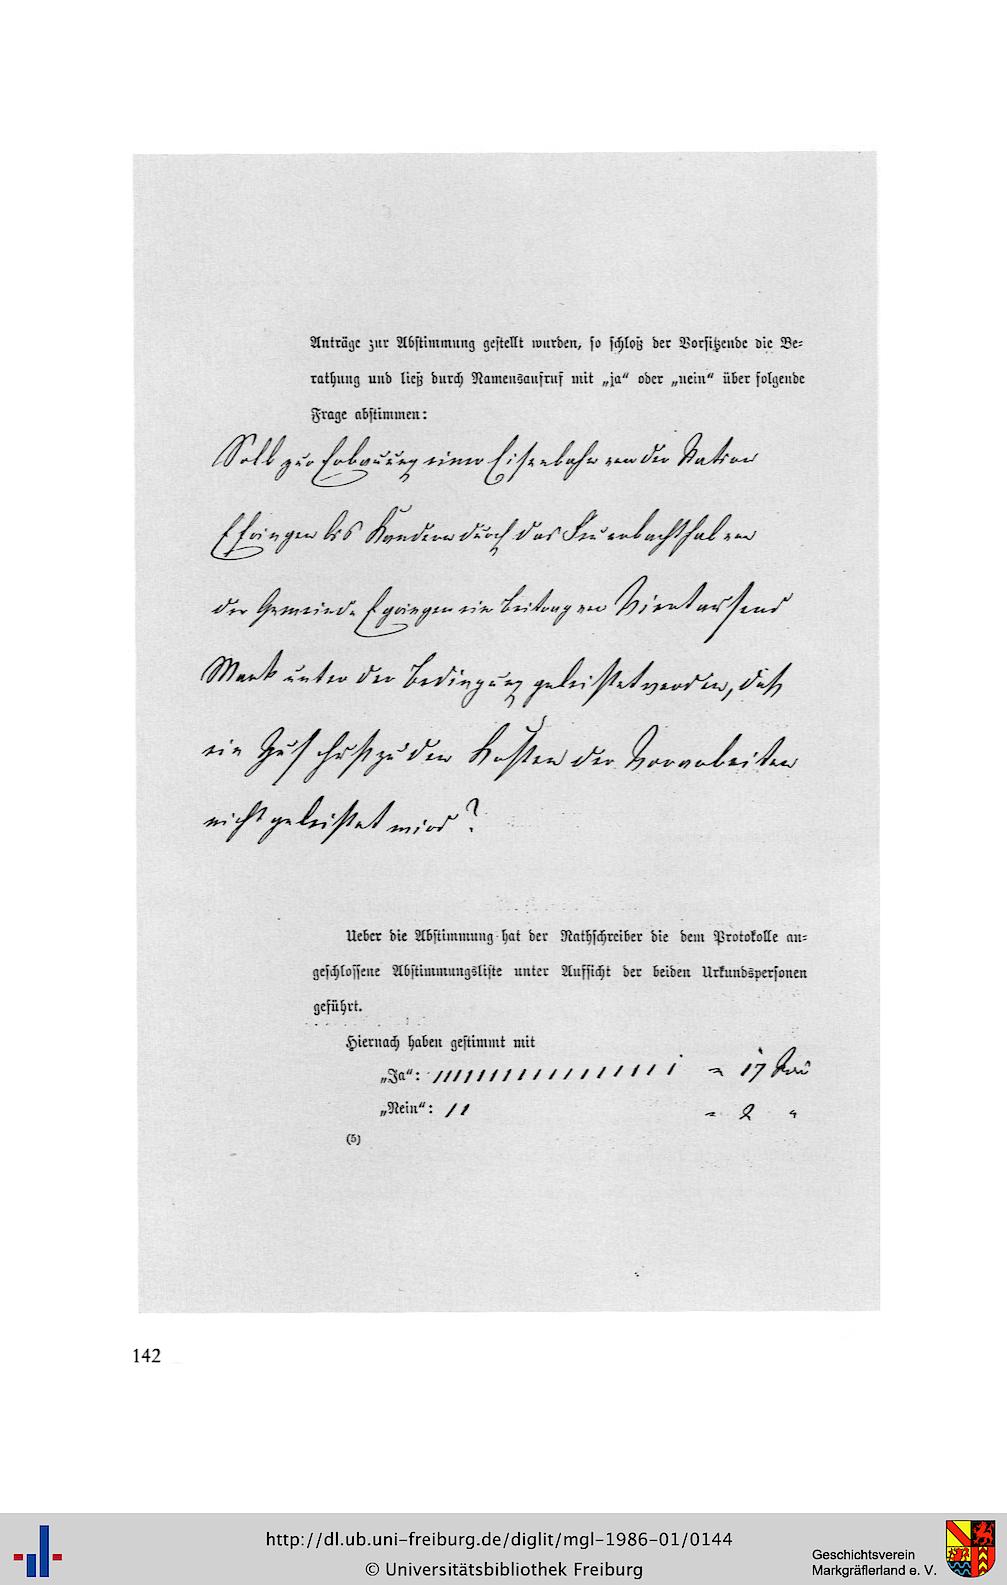 Anträge zur Abstimmung gestellt wurden, so schloß der Vorsitzende die Be-
rathung und ließ durch Namensaufruf mit „ja“ oder „nein“ über folgende
Frage abstimmen:
Soll zur Erbauung einer Eisenbahn von der Station
Efringen bis Kandern durch das Feuerbachthal von
der Gemeinde Egringen ein Beitrag von Viertausend
Mark unter der Bedingung geleistet werden, daß
ein Zuschuß zu den Kosten der Vorarbeiten
nicht geleistet wird?
Ueber die Abstimmung hat der Rathschreiber die dem Protokolle an-
geschlossene Abstimmungsliste unter Aufsicht der beiden Urkundspersonen
geführt.
Hiernach haben gestimmt mit
„Ja“: ///////////////// = 17
„Nein“: // = 2 "
(5)
142
http://dl.ub.uni-freiburg.de/diglit/mgl-1986-01/0144
© Universitätsbibliothek Freiburg
Geschichtsverein
Markgräflerland e. V.